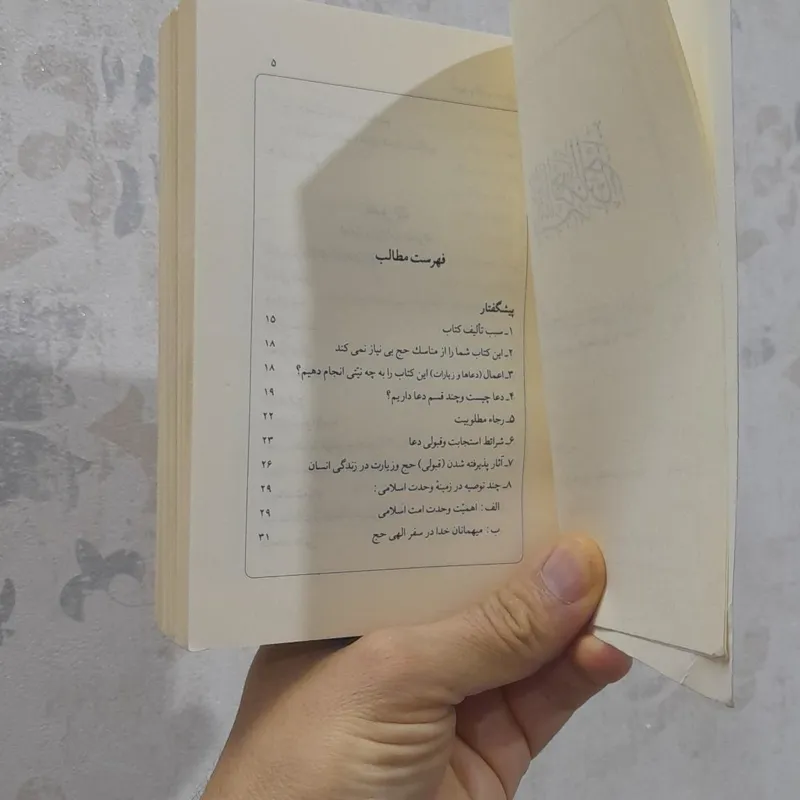 ۵
فهرست مطالب
پیشگفتار
۱ـ سبب تألیف کتاب ۱۵
۲ـ این کتاب شما را از مناسك حج بی نیاز نمی کند ۱۸
۳ـ اعمال (دعاها و زیارات) این کتاب را به چه نیّتی انجام دهیم؟ ۱۸
۴ـ دعا چیست وچند قسم دعا داریم؟ ۱۹
۵ـ رجاء مطلوبیت ۲۲
۶ـ شرائط استجابت وقبولی دعا ۲۳
۷ـ آثار پذیرفته شدن (قبولی) حج وزیارت در زندگی انسان ۲۶
۸ـ چند توصیه در زمینهٔ وحدت اسلامی: ۲۹
الف: اهمیّت وحدت امت اسلامی ۲۹
ب: میهمانان خدا در سفر الهی حج ۳۱